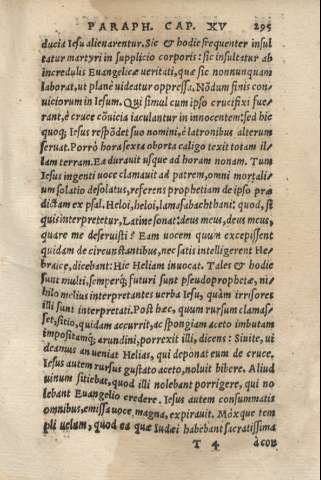 PARAPH. CAP. XV 295
ducia Iesu alienarentur. Sic & hodie frequenter insul
tatur martyri in supplicio corporis: sic insultatur ab
incredulis Euangelicæ ueritati, quæ sic nonnunquam
laborat, ut planè uideatur oppressa. Nōdum finis con
uiciorum in Iesum. Qui simul cum ipso crucifixi fue
rant, è cruce cōuicia iaculantur in innocentem: sed hic
quoq; Iesus respōdet suo nomini, è latronibus alterum
seruat. Porrò hora sexta oborta caligo texit totam il-
lam terram. Ea durauit usque ad horam nonam. Tum
Iesus ingenti uoce clamauit ad patrem, omni mortali-
um solatio desolatus, referens prophetiam de ipso præ
dictam ex psal. Heloi, heloi, lamasabachthani: quod, si
quis interpretetur, Latine sonat: deus meus, deus meus,
quare me deseruisti? Eam uocem quum excepissent
quidam de circunstantibus, nec satis intelligerent He-
braicè, dicebant: Hic Heliam inuocat. Tales & hodie
sunt multi, semperq; futuri sunt pseudoprophetæ, ni-
hilo melius interpretantes uerba Iesu, quàm irrisores
illi sunt interpretati. Post hæc, quum rursum clamas-
set, sitio, quidam accurrit, ac spongiam aceto imbutam
impositamq; arundini, porrexit illi, dicens: Sinite, ui
deamus an ueniat Helias, qui deponat eum de cruce.
Iesus autem rursus gustato aceto, noluit bibere. Aliud
uinum sitiebat, quod illi nolebant porrigere, qui no
lebant Euangelio credere. Iesus autem consummatis
omnibus, emissa uoce magna, expirauit. Móxque tem
pli uelum, quod ea quæ Iudæi habebant sacratissima
T 4 acon